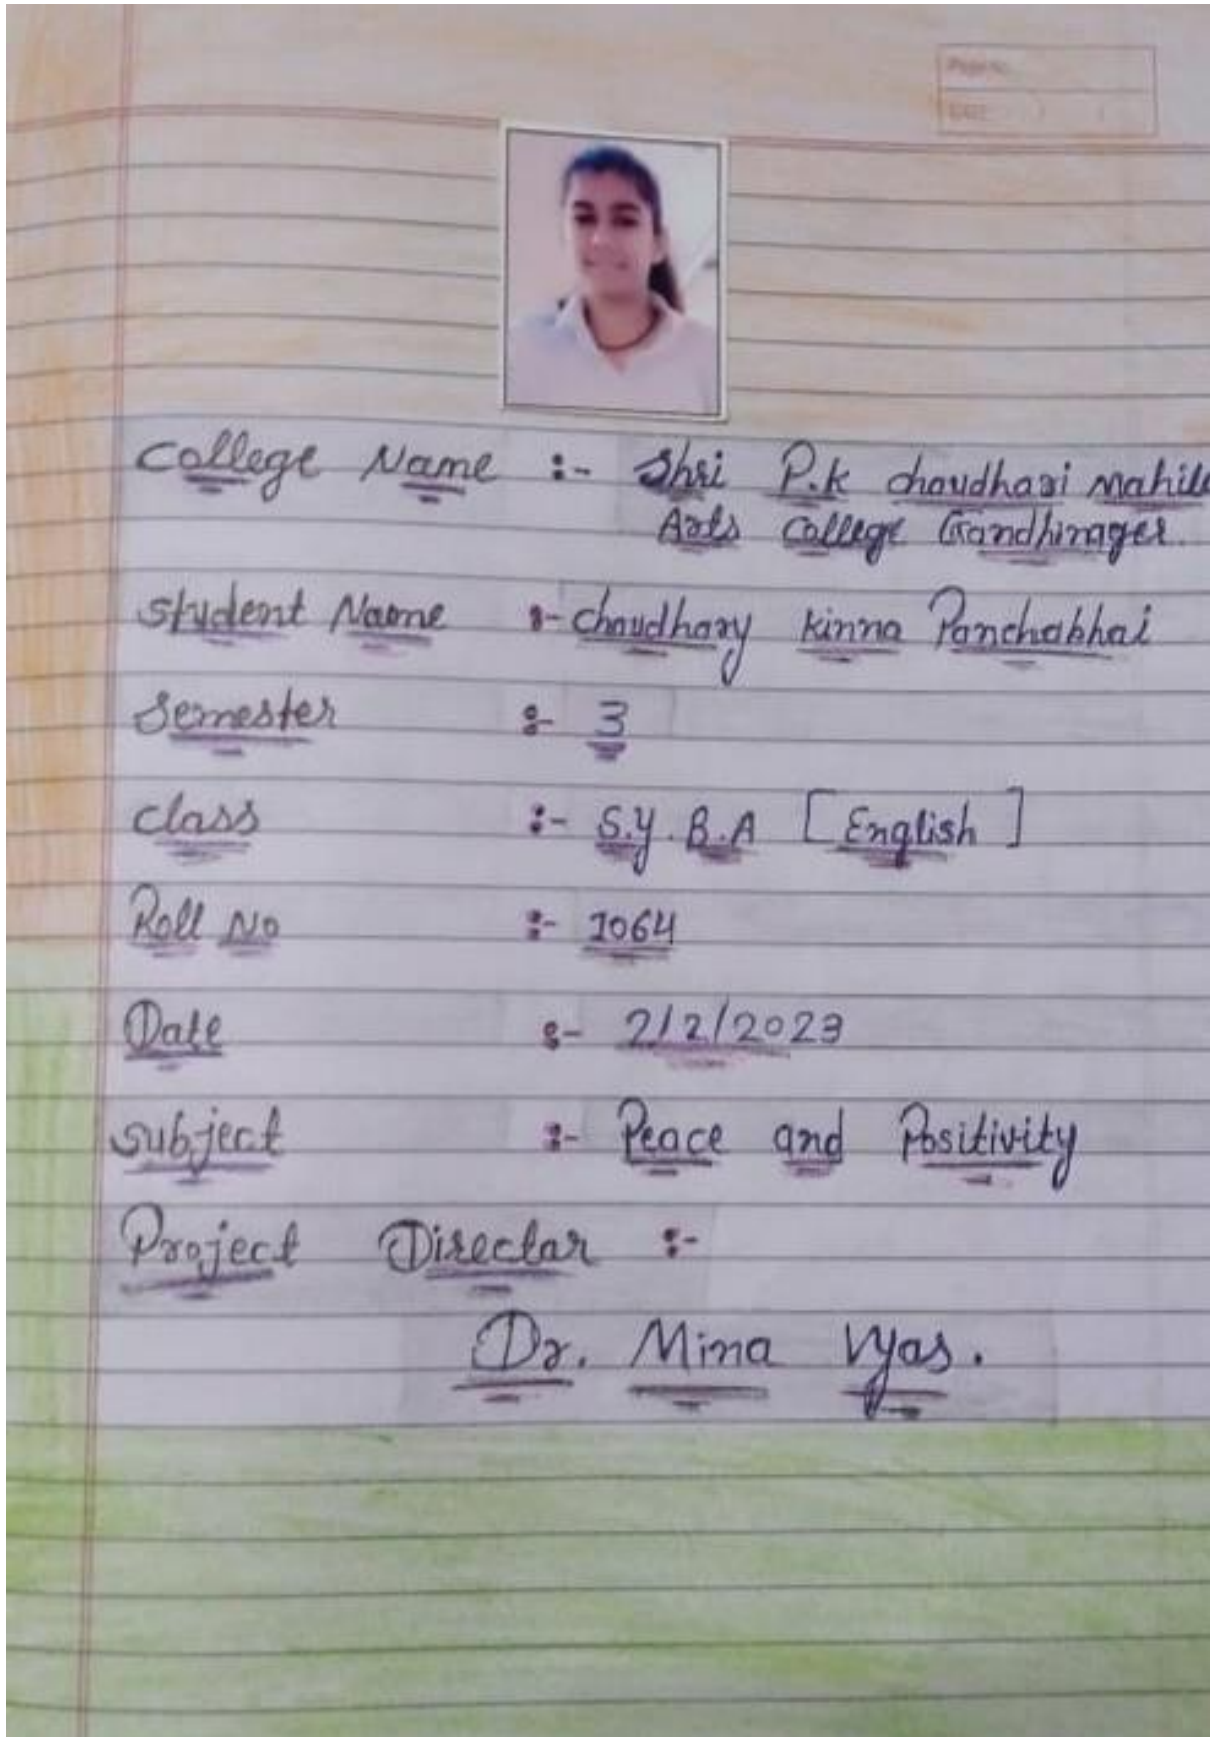 Page No.
DATE
College Name :- Shri P.K chaudhari Mahila
Arts College Gandhinager.
Student Name :- Chaudhary Kinna Panchabhai
Semester :- 3
class :- S.Y.B.A [English]
Roll No :- 1064
Date :- 2/2/2023
Subject :- Peace and Positivity
Project Directar :-
Dr. Mina Vyas.